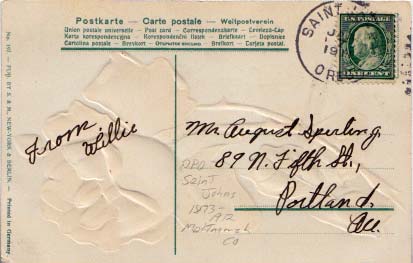 Postkarte — Carte postale — Weltpostverein
Union postale universelle — Post card — Correspondenzkarte — Levelezö-Lap
Karta korespondencyjna — Korespondencni listek — Briefkaart — Dopisnice
Cartolina postale — Brevkort — Brefkort — Cartaj postal.
SAINT
OR
U.S. POSTAGE
ONE CENT
No. 102 — PUB. BY S. & M., NEW-YORK & BERLIN. — Printed in Germany
From
Willie
Mr. August Sperling
89 N. Fifth St.,
Portland,
DPO
Saint
Johns
1873-
1912
Multnomah
Co